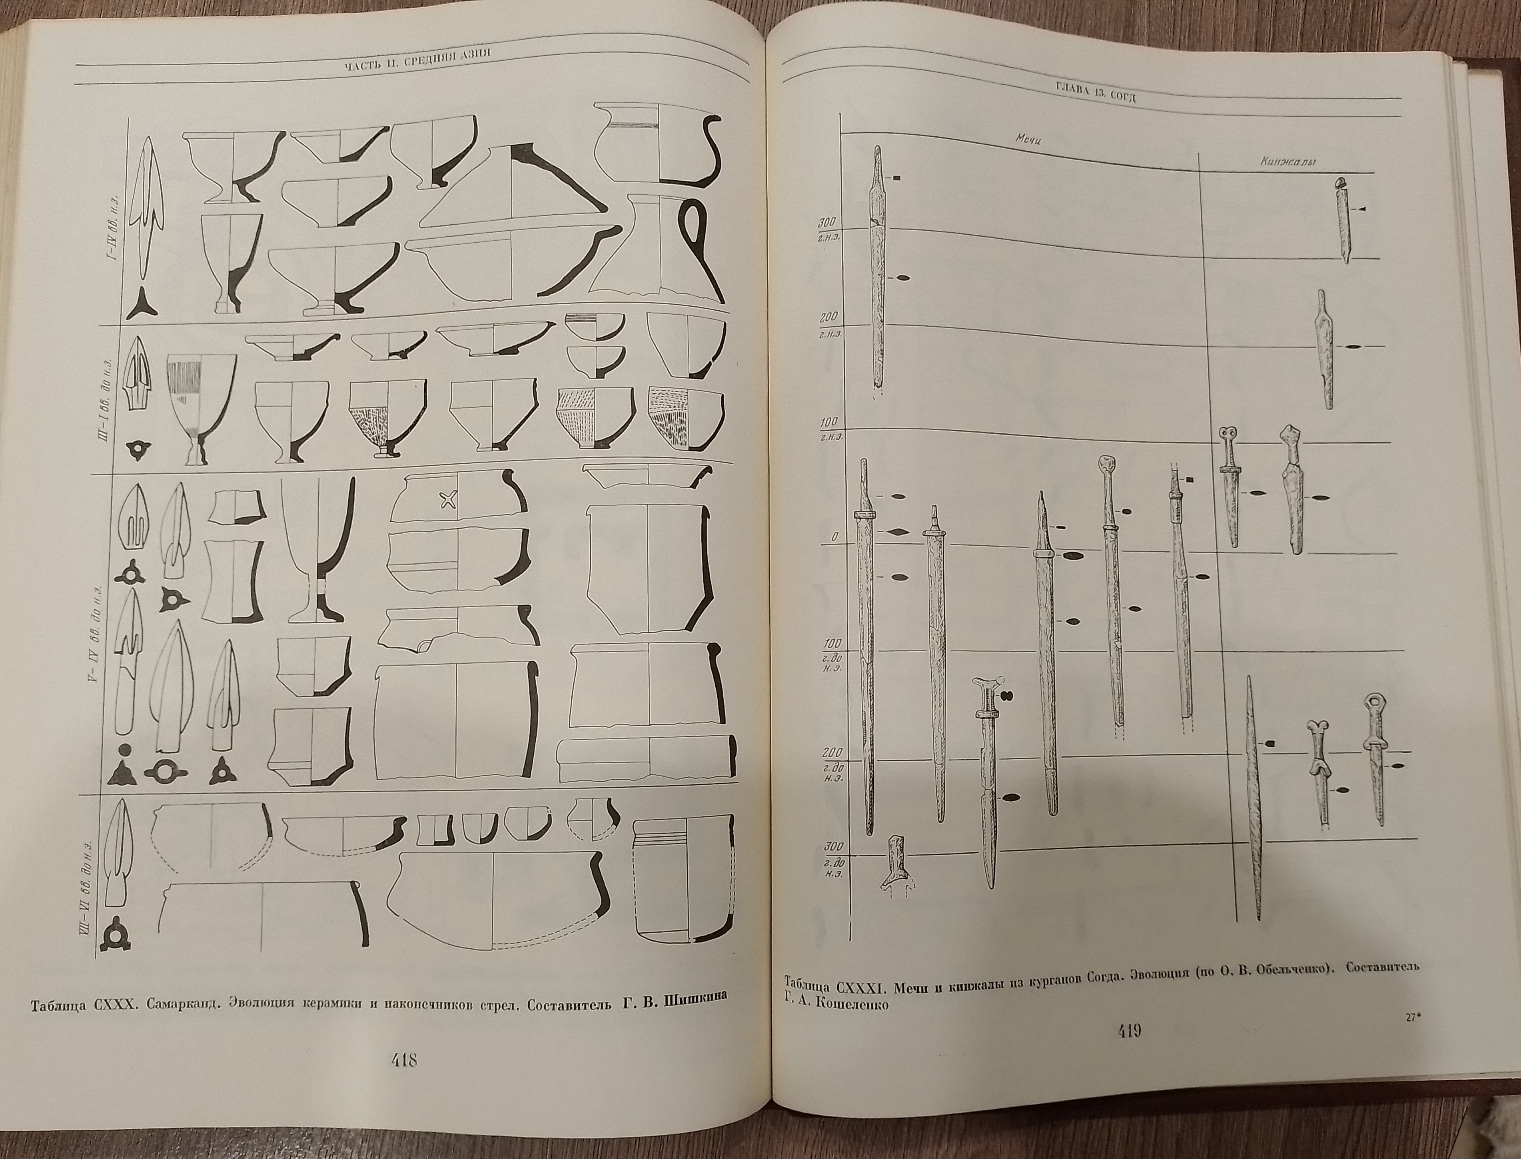 ЧАСТЬ II. СРЕДНЯЯ АЗИЯ
I–IV вв. н.э.
III–I вв. до н.э.
V–IV вв. до н.э.
VII–VI вв. до н.э.
Таблица CXXX. Самарканд. Эволюция керамики и наконечников стрел. Составитель Г. В. Шишкина
418
ГЛАВА 13. СОГД
Мечи
Кинжалы
300
г.н.э.
200
г.н.э.
100
г.н.э.
0
100
г. до
н.э.
200
г. до
н.э.
300
г. до
н.э.
Таблица CXXXI. Мечи и кинжалы из курганов Согда. Эволюция (по О. В. Обельченко). Составитель
Г. А. Кошеленко
419
27*